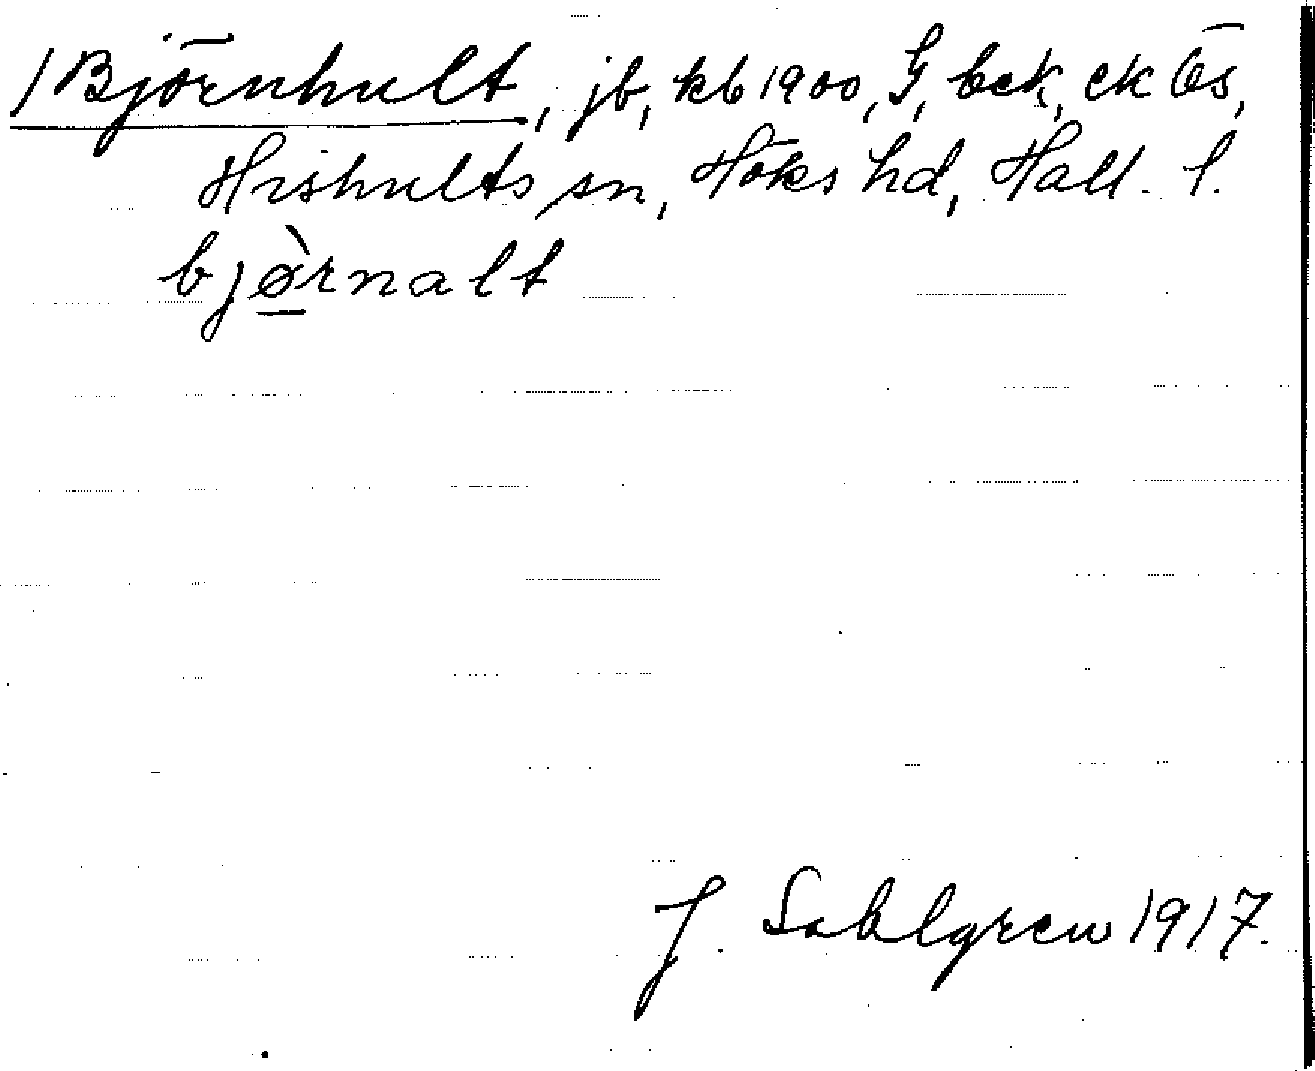 /Björnhult, jb, kb 1900, G, bek, ek ös,
Hishults sn, Höks hd, Hall. l.
bjø̱̀rnalt
J. Sahlgren 1917.